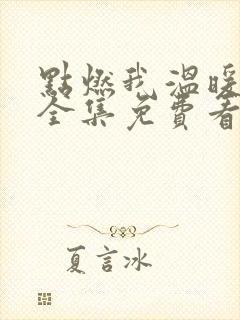 點燃我溫暖
全集免費看
夏言冰